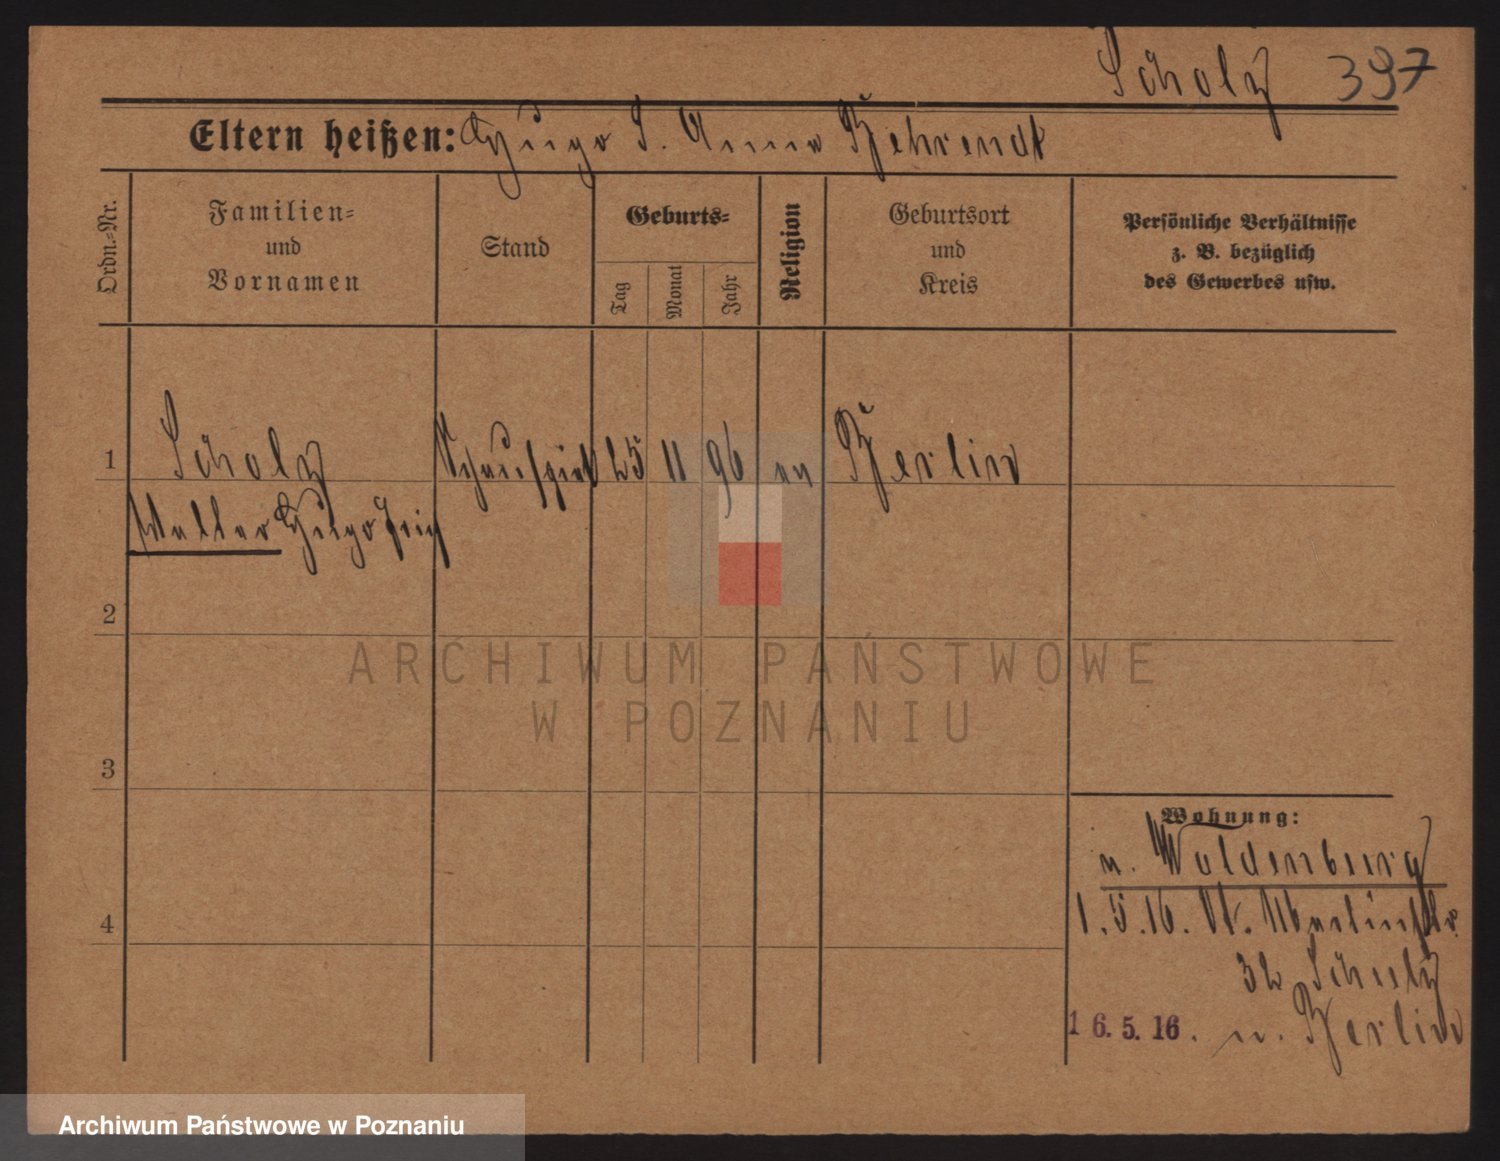 Scholz 397
Eltern heißen: Hugo S. Anna Behrendt
Ordn.-Nr.
Familien-
und
Vornamen
Stand
Geburts-
Tag
Monat
Jahr
Religion
Geburtsort
und
Kreis
Persönliche Verhältnisse
z. B. bezüglich
des Gewerbes usw.
1 Scholz 25 11 96 ev Berlin
Walter Hugo
2
ARCHIWUM PAŃSTWOWE
W POZNANIU
3
Wohnung:
n. Woldenburg
4
1.5.16. St. Martinstr.
32 Scholz
16.5.16. n. Berlin
Archiwum Państwowe w Poznaniu